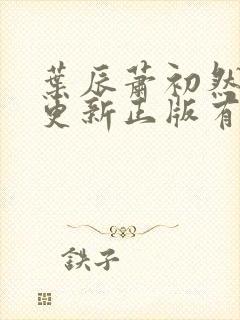 葉辰蕭初然
更新正版有
鉄子